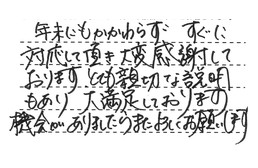 年末にもかかわらず すぐに
対応して頂き大変感謝して
おります とても親切な説明
もあり 大満足しております
機会がありましたらまたよろしくお願いします